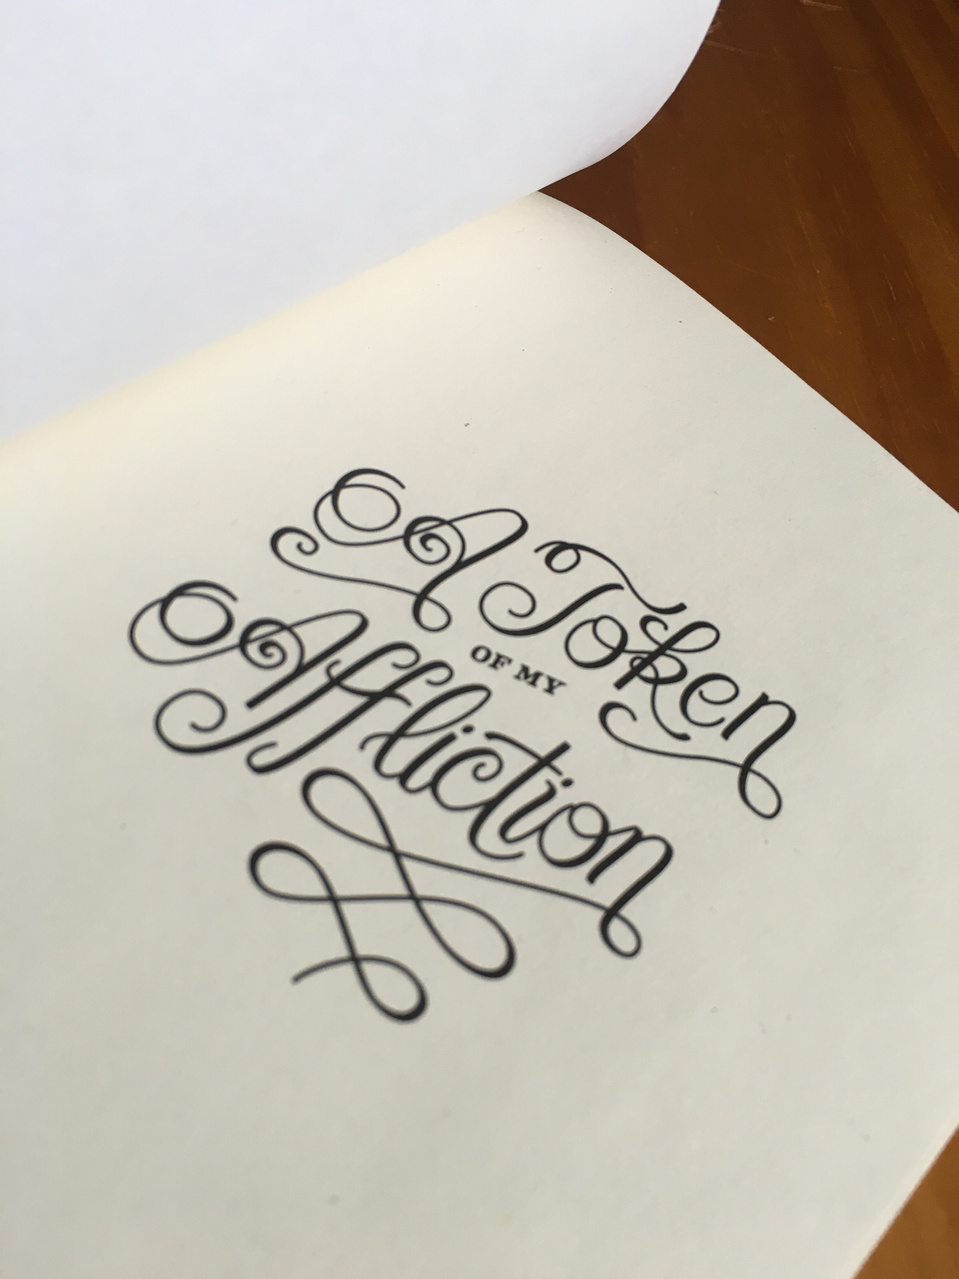 A Token
OF MY
Affliction